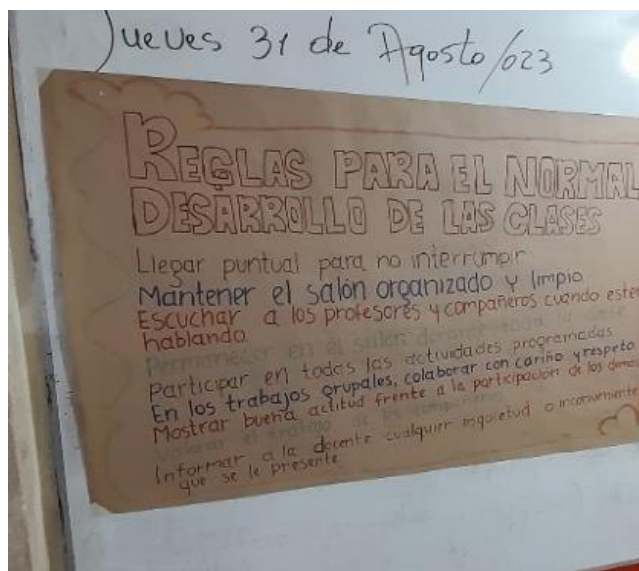 Jueves 31 de Agosto/023
REGLAS PARA EL NORMAL
DESARROLLO DE LAS CLASES
Llegar puntual para no interrumpir
Mantener el salón organizado y limpio
Escuchar a los profesores y compañeros cuando esten
hablando.
Permanecer en el salón durante toda la clase
Participar en todas las actividades programadas.
En los trabajos grupales, colaborar con cariño y respeto
Mostrar buena actitud frente a la participación de los demas
Valorar el trabajo de los compañeros
Informar a la docente cualquier inquietud o inconveniente
que se le presente.